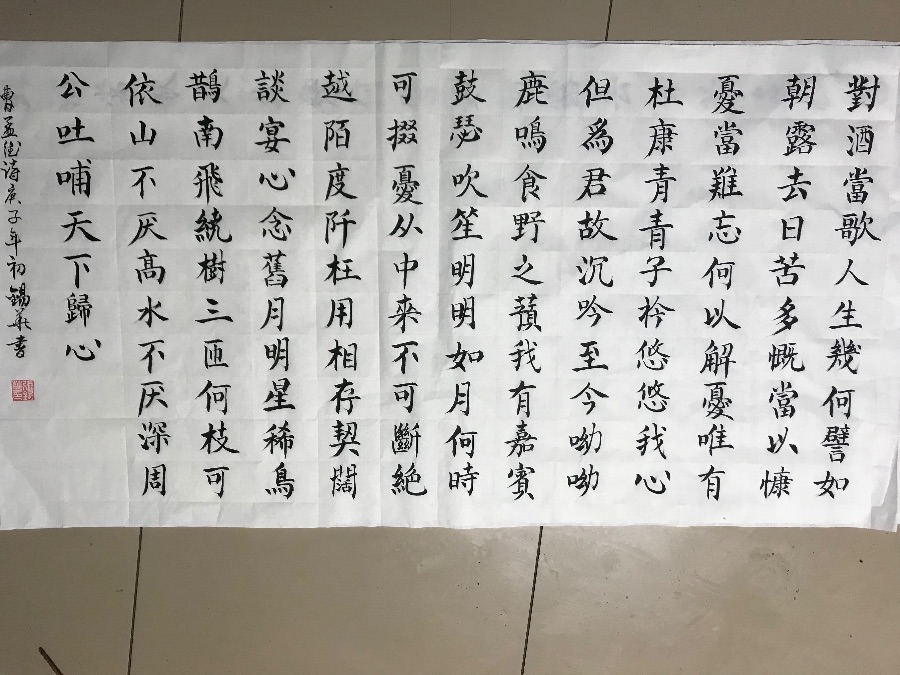 對酒當歌人生幾何譬如
朝露去日苦多慨當以慷
憂當難忘何以解憂唯有
杜康青青子衿悠悠我心
但爲君故沉吟至今呦呦
鹿鳴食野之蘋我有嘉賓
鼓瑟吹笙明明如月何時
可掇憂从中来不可斷絶
越陌度阡枉用相存契闊
談宴心念舊月明星稀鳥
鵲南飛繞樹三匝何枝可
依山不厌高水不厌深周
公吐哺天下歸心
曹孟德诗庚子年初錫華書